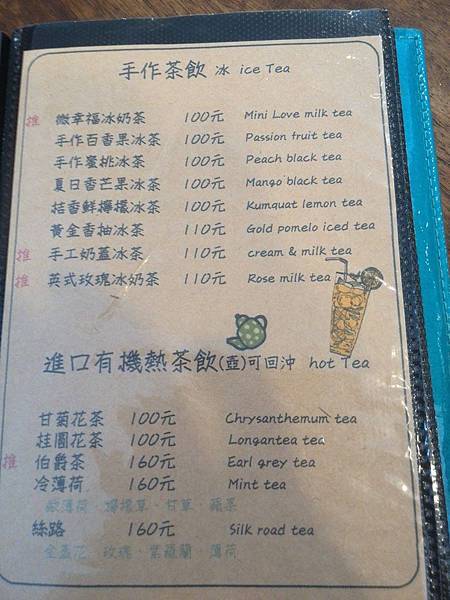 手作茶飲 冰 ice Tea
推 微幸福冰奶茶 100元 Mini Love milk tea
手作百香果冰茶 100元 Passion fruit tea
手作蜜桃冰茶 100元 Peach black tea
夏日香芒果冰茶 100元 Mango black tea
桔香鮮檸檬冰茶 100元 Kumquat lemon tea
黃金香柚冰茶 110元 Gold pomelo iced tea
推 手工奶蓋冰茶 110元 cream & milk tea
推 英式玫瑰冰奶茶 110元 Rose milk tea
進口有機熱茶飲(壺)可回沖 hot Tea
甘菊花茶 100元 Chrysanthemum tea
桂圓花茶 100元 Longantea tea
推 伯爵茶 160元 Earl grey tea
冷薄荷 160元 Mint tea
薄荷、檸檬草、甘草、蘋果
絲路 160元 Silk road tea
金盞花、玫瑰、紫羅蘭、薄荷